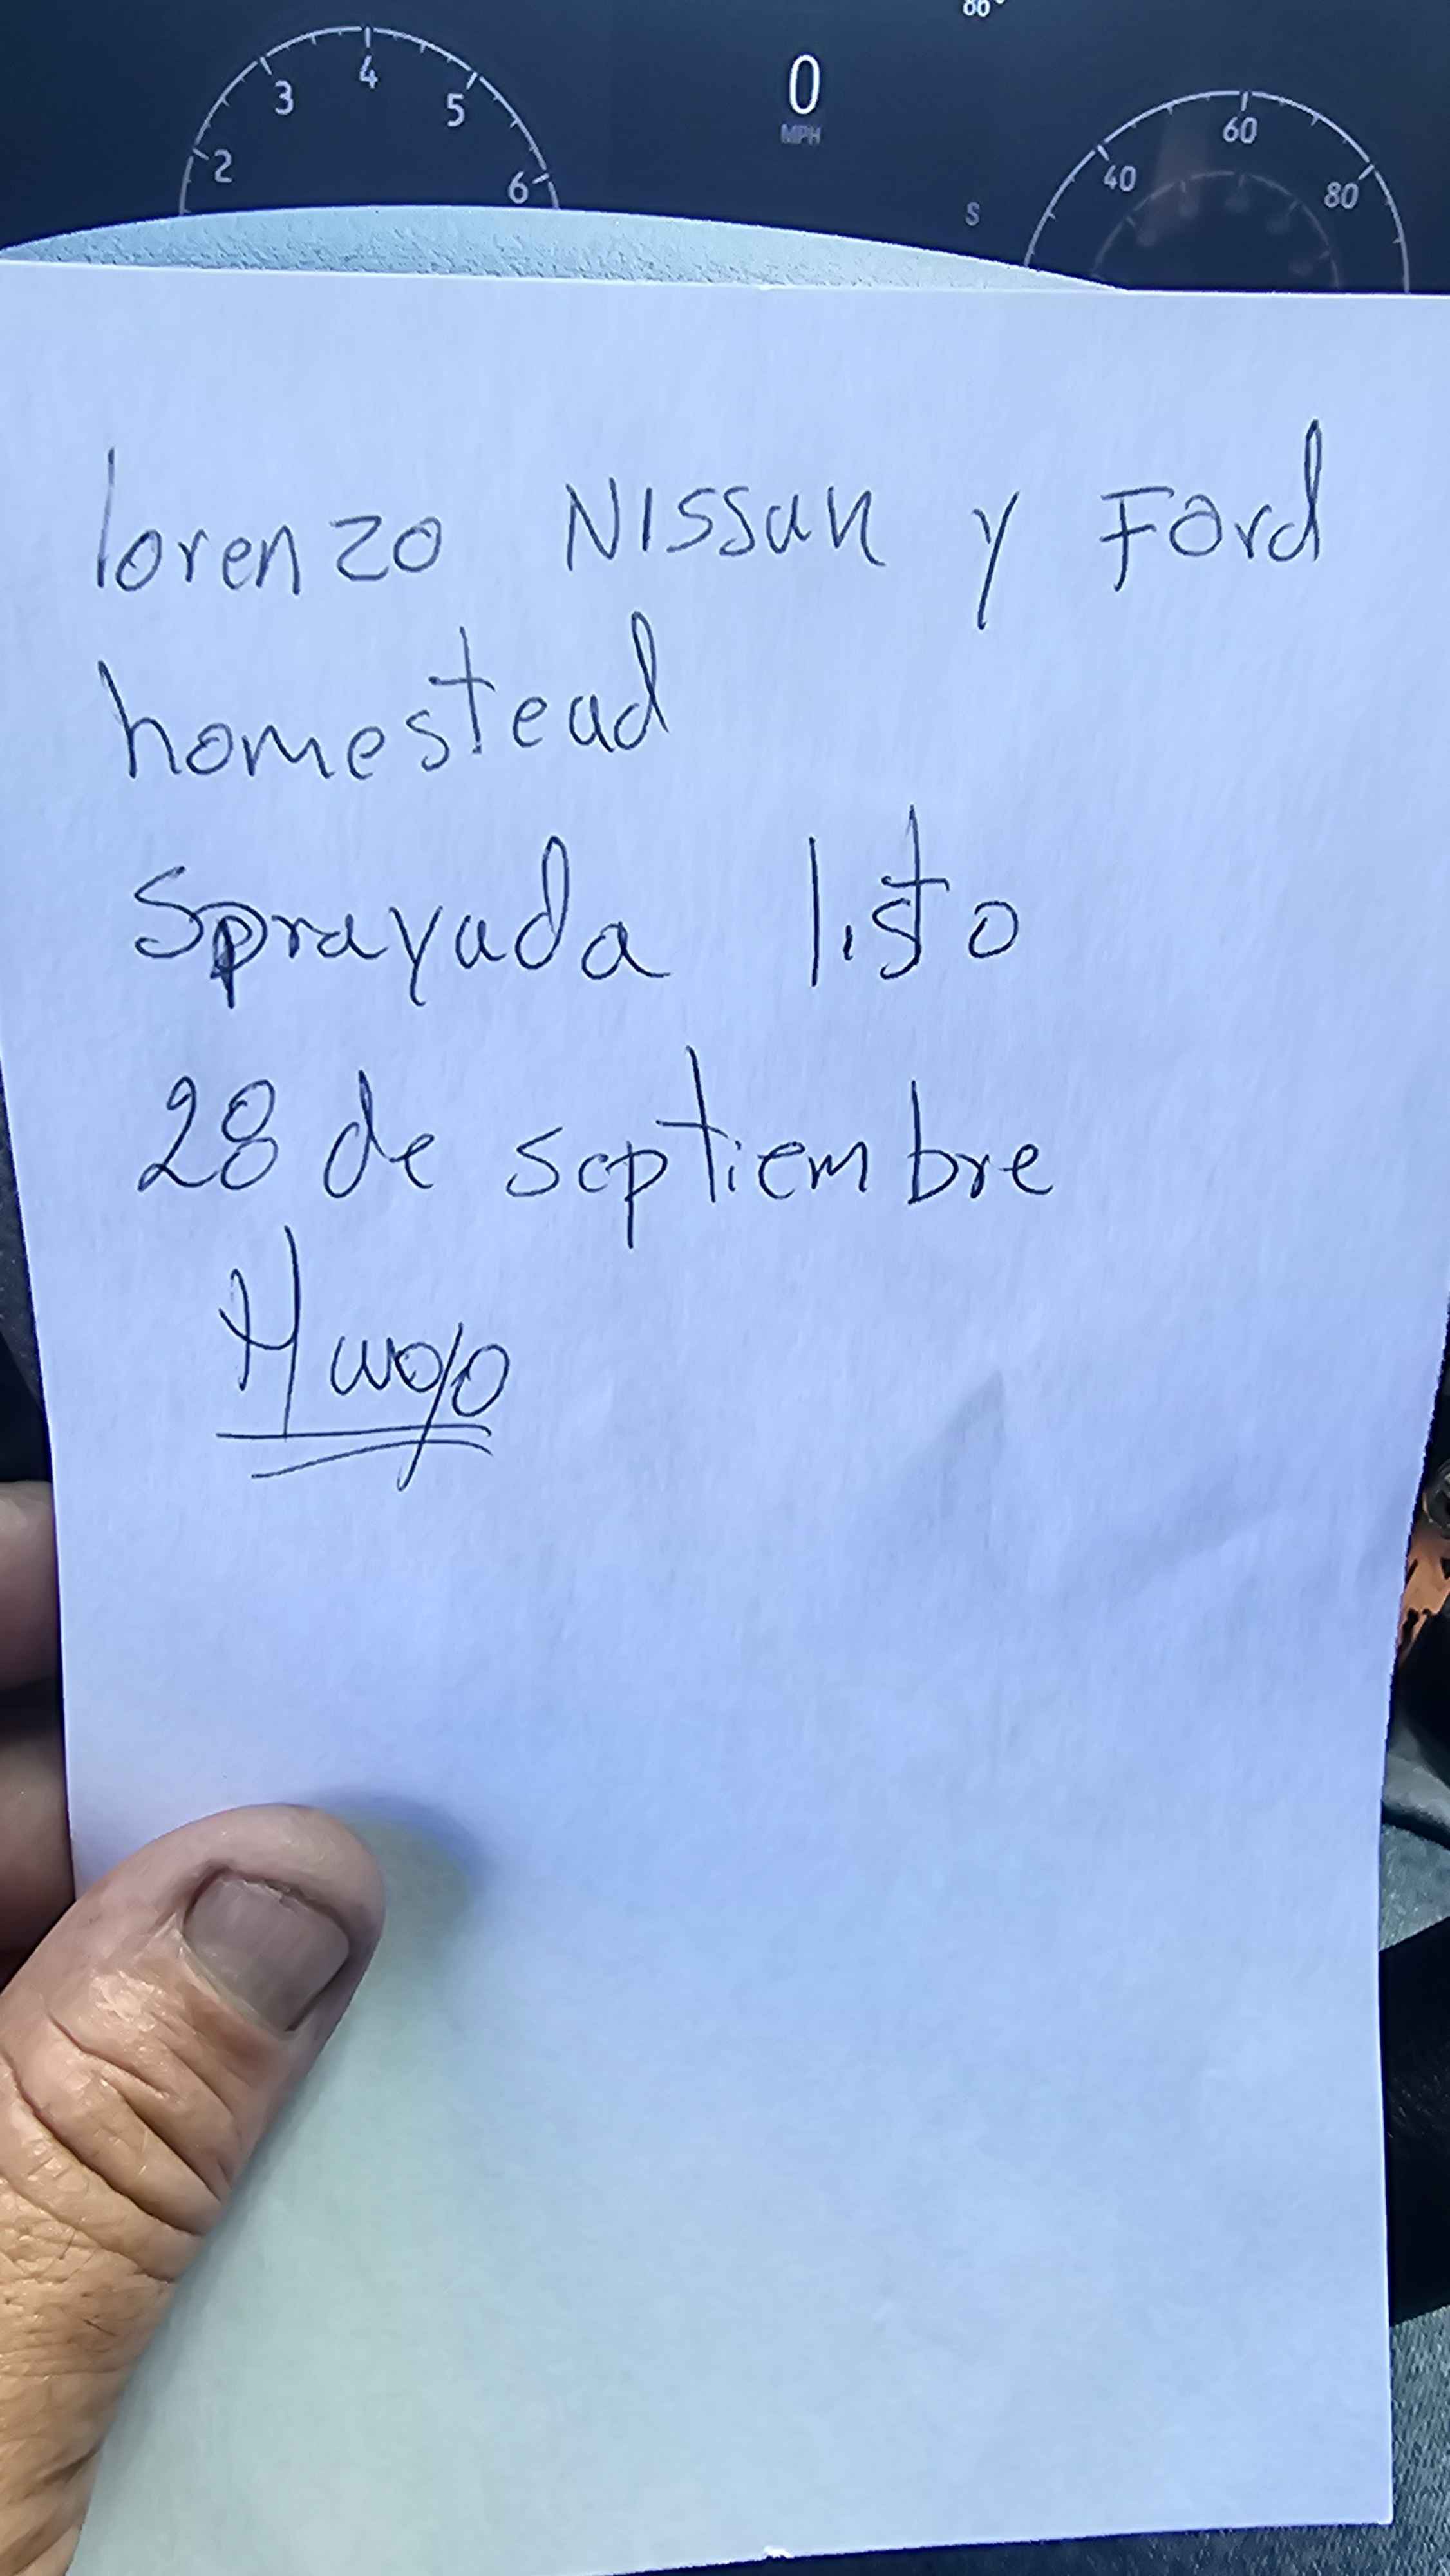 86°
2 3 4 5 6
0
MPH
S
40 60 80
lorenzo Nissan y Ford
homestead
Sprayada listo
28 de septiembre
Hugo